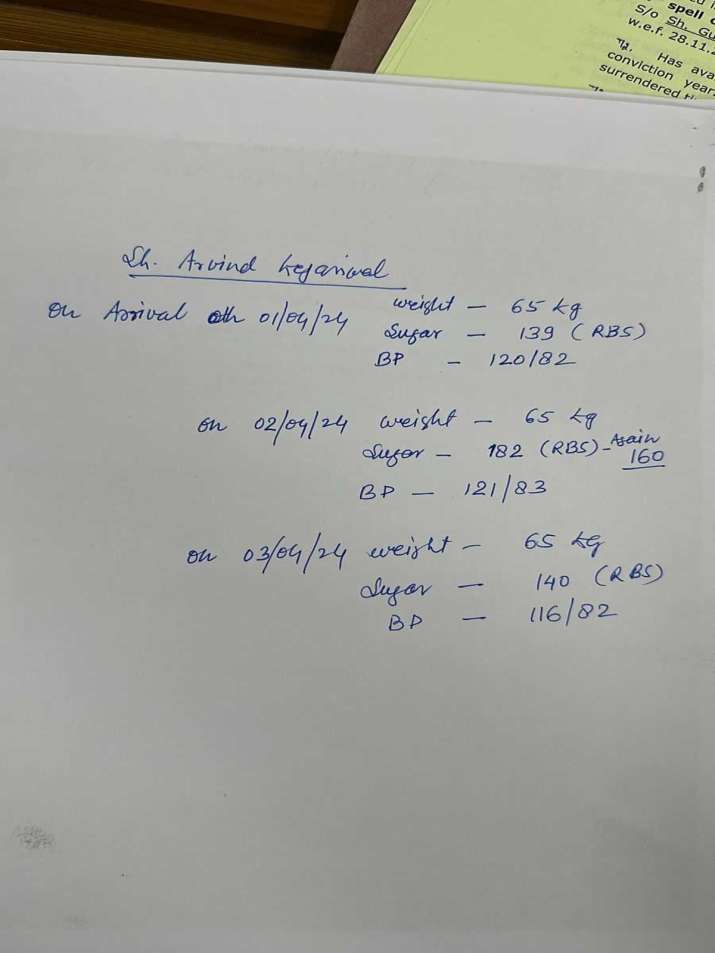 spell
S/o Sh. Gu
w.e.f. 28.11.
Has ava
conviction year
surrendered
Sh. Arvind Kejariwal
On Arrival oth 01/04/24 weight – 65 kg
Sugar – 139 (RBS)
BP – 120/82
on 02/04/24 weight – 65 kg
Sugar – 182 (RBS) – Again 160
BP – 121/83
on 03/04/24 weight – 65 kg
Sugar – 140 (RBS)
BP – 116/82